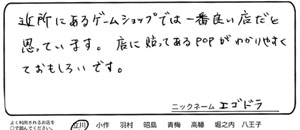 近所にあるゲームショップでは一番良い店だと
思っています。店に貼ってあるPOPがわかりやすく
ておもしろいです。
ニックネーム エゴドラ
よく利用されるお店を
○で囲んでください。
立川 小作 羽村 昭島 青梅 高幡 堀之内 八王子